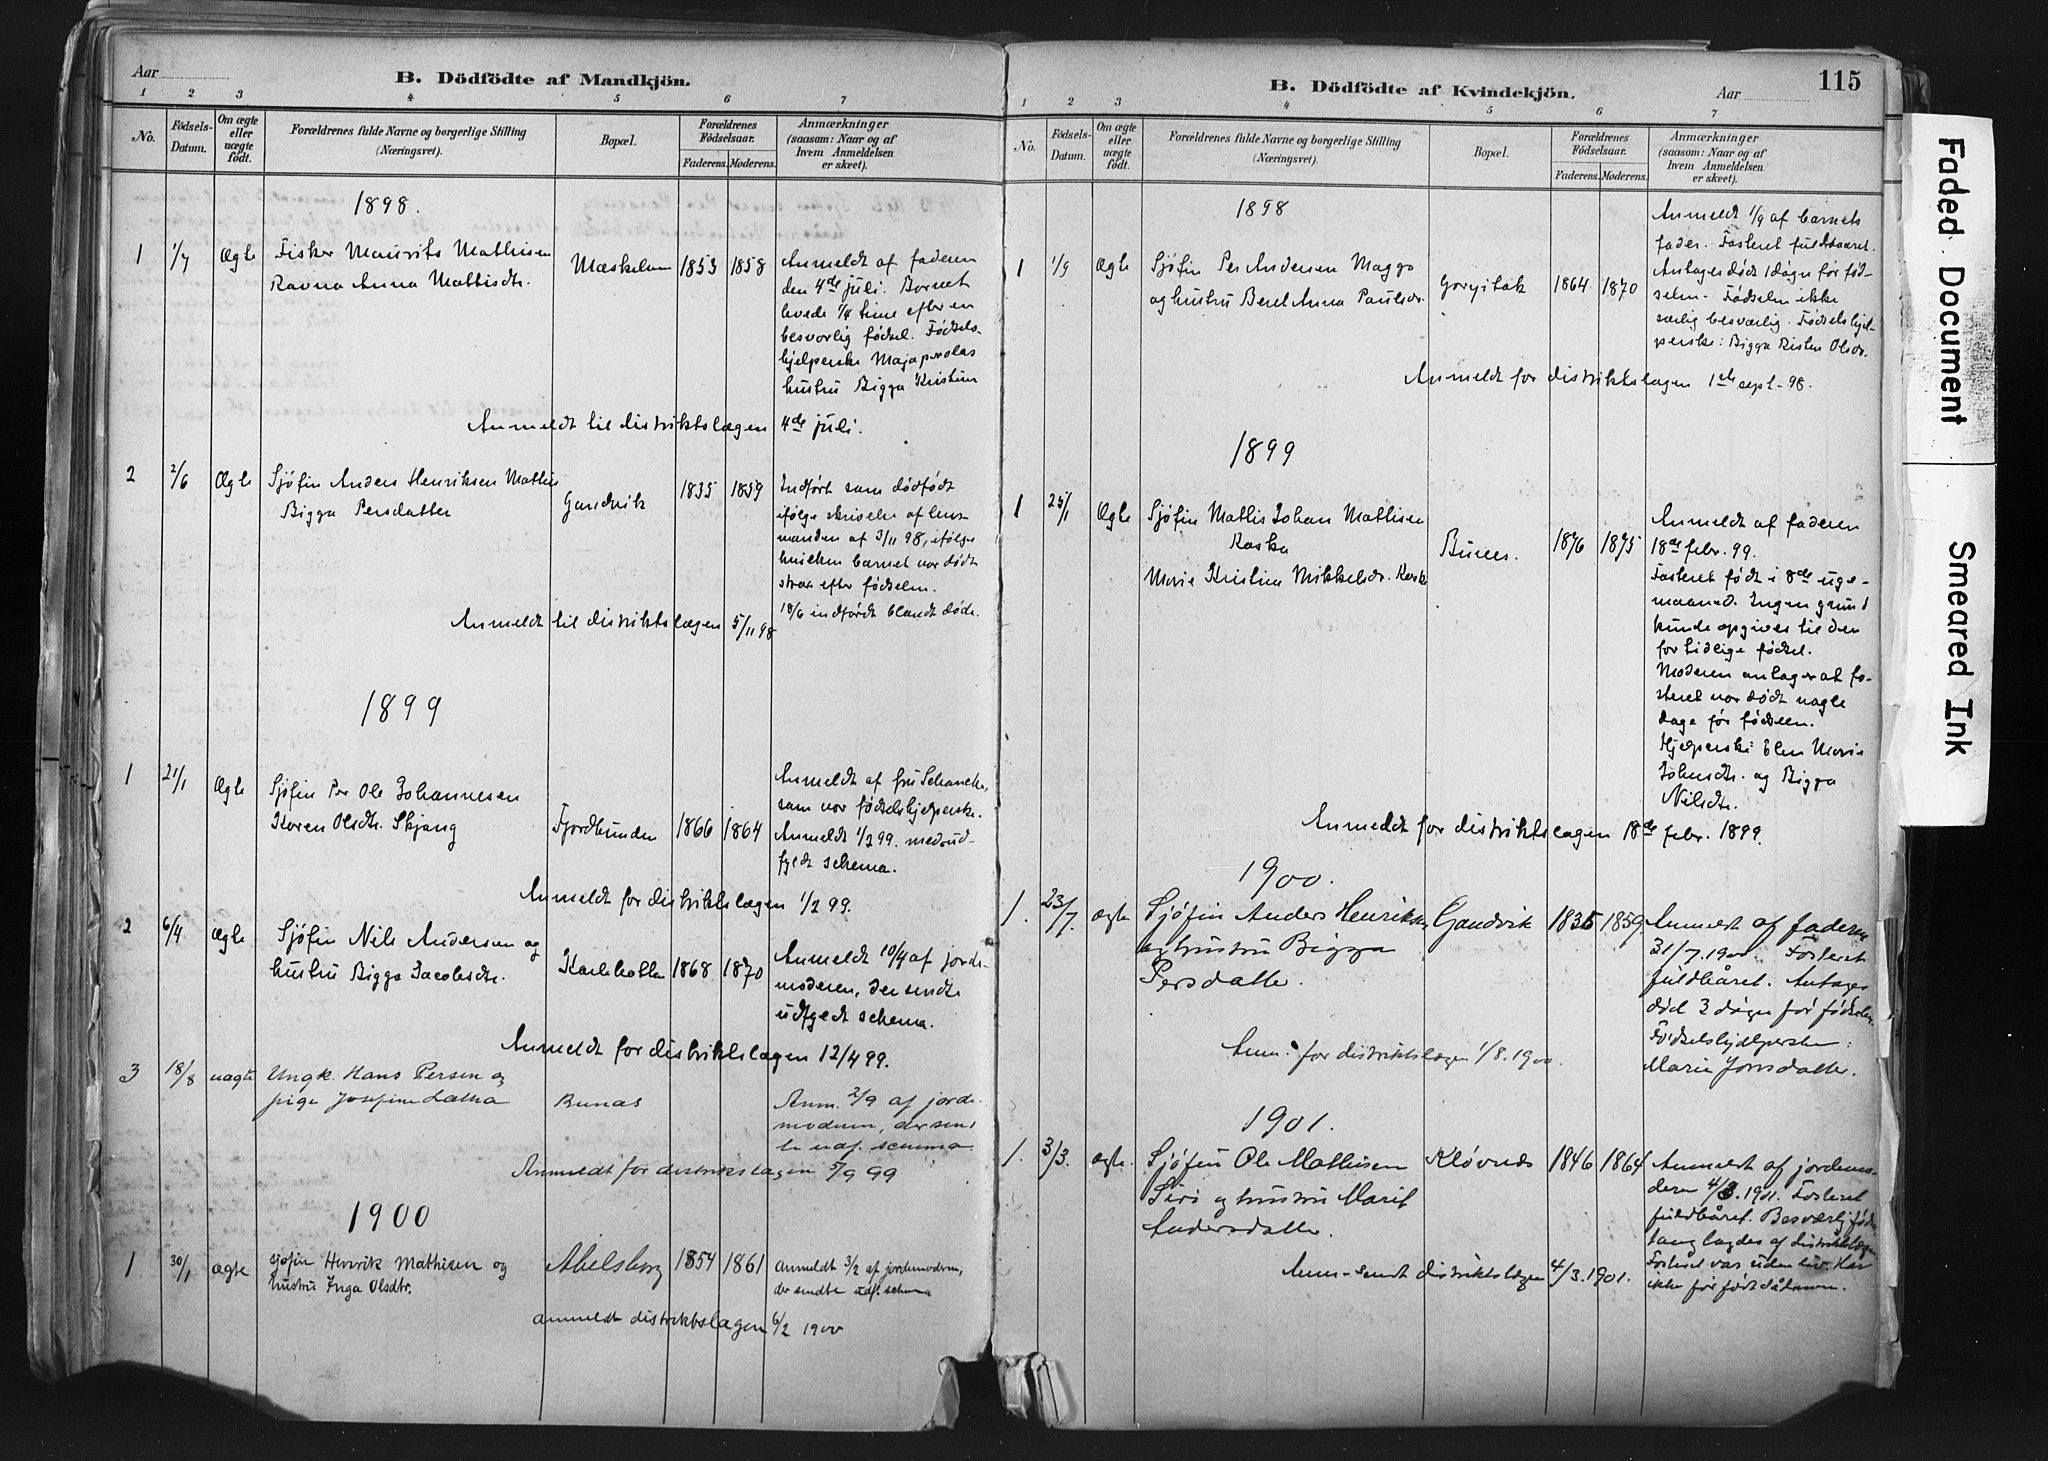 Aar
B. Dödfödte af Mandkjön.
1 2 3 4 5 6 7
No.
Födsels-
Datum.
Om ægte
eller
uægte
födt.
Forældrenes fulde Navne og borgerlige Stilling
(Næringsvei).
Bopæl.
Forældrenes
Födselsaar.
Faderens. Moderens.
Anmærkninger
(saasom: Naar og af
hvem Anmeldelsen
er skeet).
1898.
1 1/7 Ægte
Fisker Maurits Mathisen
Ravna Anna Mathisdtr.
1853 1858
Anmeldt af faderen
den 4de juli. Barnet
levede 1/4 time efter en
besværlig fødsel. Fødsels-
hjelperske
hustru Bigga Kristin
Anmeldt til distriktslægen 4de juli.
2 2/6 Ægte
Sjøfin Anders Henriksen Mathis
Bigga Persdatter
Gandvik
1835 1859
Indført som dødfødt
ifølge skrivelse af lens-
manden af 3/11 98, ifølge
hvilken barnet var dødt
strax efter fødselen.
18/6 indførdt blandt døde.
Anmeldt til distriktslægen 5/11 98
1899
1 21/1 Ægte
Sjøfin Per Ole Johannesen
Karen Olsdtr. Skjang
Fjordbunden
1866 1864
Anmeldt af fru Schancke,
som var fødselshjelperske.
Anmeldt 1/2 99. med ud-
fyldt schema.
Anmeldt for distriktslægen 1/2 99.
2 6/4 ægte
Sjøfin Nils Andersen og
hustru Bigga Jacobsdtr.
Karlebotten
1868 1870
Anmeldt 10/4 af jorde-
moderen, der sendte
udfyldt schema.
Anmeldt for distriktslægen 12/4 99.
3 18/8 uægte
Ungk. Hans Persen og
pige Josefine
Bunæs
Anm. 2/9 af jorde-
moderen, der send
te udf. schema
Anmeldt for distriktslægen 5/9 99
1900
1 30/1 ægte
sjøfin Henrik Mathisen og
hustru Inga Olsdtr.
Abelsborg
1854 1861
Anmeldt 3/2 af jordemoderen,
der sendte udf. schema
anmeldt distriktslægen 6/2 1900
B. Dödfödte af Kvindekjön.
Aar
115
1 2 3 4 5 6 7
No.
Födsels-
Datum.
Om ægte
eller
uægte
födt.
Forældrenes fulde Navne og borgerlige Stilling
(Næringsvei).
Bopæl.
Forældrenes
Födselsaar.
Faderens. Moderens.
Anmærkninger
(saasom: Naar og af
hvem Anmeldelsen
er skeet).
1898
1 1/9 Ægte
Sjøfin Per Andersen Magga
og hustru Beret Anna Paulsdr.
1864 1870
Anmeldt 1/9 af barnets
fader. Fosteret fuldbaaret.
Antages dødt 1 døgn før fød-
selen. Fødselen ikke
særlig besværlig. Fødselshjel-
perske: Bigga Risten Olsdr.
Anmeldt for distriktslægen 1ste sept. 98.
1899
1 25/1 Ægte
Sjøfin Mathis Johan Mathisen
Kaska
Marie Kristine Mikkelsdr. Kask
Bunes.
1876 1875
Anmeldt af faderen
18de febr. 99.
Fosteret født i 8de uge-
maaned. Ingen grund
kunde opgives til den
for tidlige fødsel.
Moderen antager at fo-
steret var dødt nogle
dage før fødselen.
Hjelperske: Elen Marie
Johnsdtr. og Bigga
Nilsdtr.
Anmeldt for distriktslægen 18de febr. 1899.
1900.
1. 23/7. ægte
Sjøfin Anders Henriksen
og hustru Bigga
Persdatter.
Gandvik
1835 1859
Anmeldt af faderen
31/7. 1900. Fosteret
fuldbåret. Antages
død 2 døgn før fødselen.
Fødselshjelperske:
Marie Jonsdatter.
Anm. for distriktslægen 1/8. 1900.
1901.
1. 3/3. ægte.
Sjøfin Ole Mathisen
Siri og hustru Marit
Andersdatter.
Kløvnes
1846 1864
Anmeldt af jordemo-
deren 4/3. 1901. Fosteret
fuldbåret. Besværlig fødsel,
tang lagdes af distriktslægen
Fosteret var uden liv. Har
ikke før født dødt barn.
Anm. sendt distriktslægen 4/3. 1901.
Faded Document
Smeared Ink